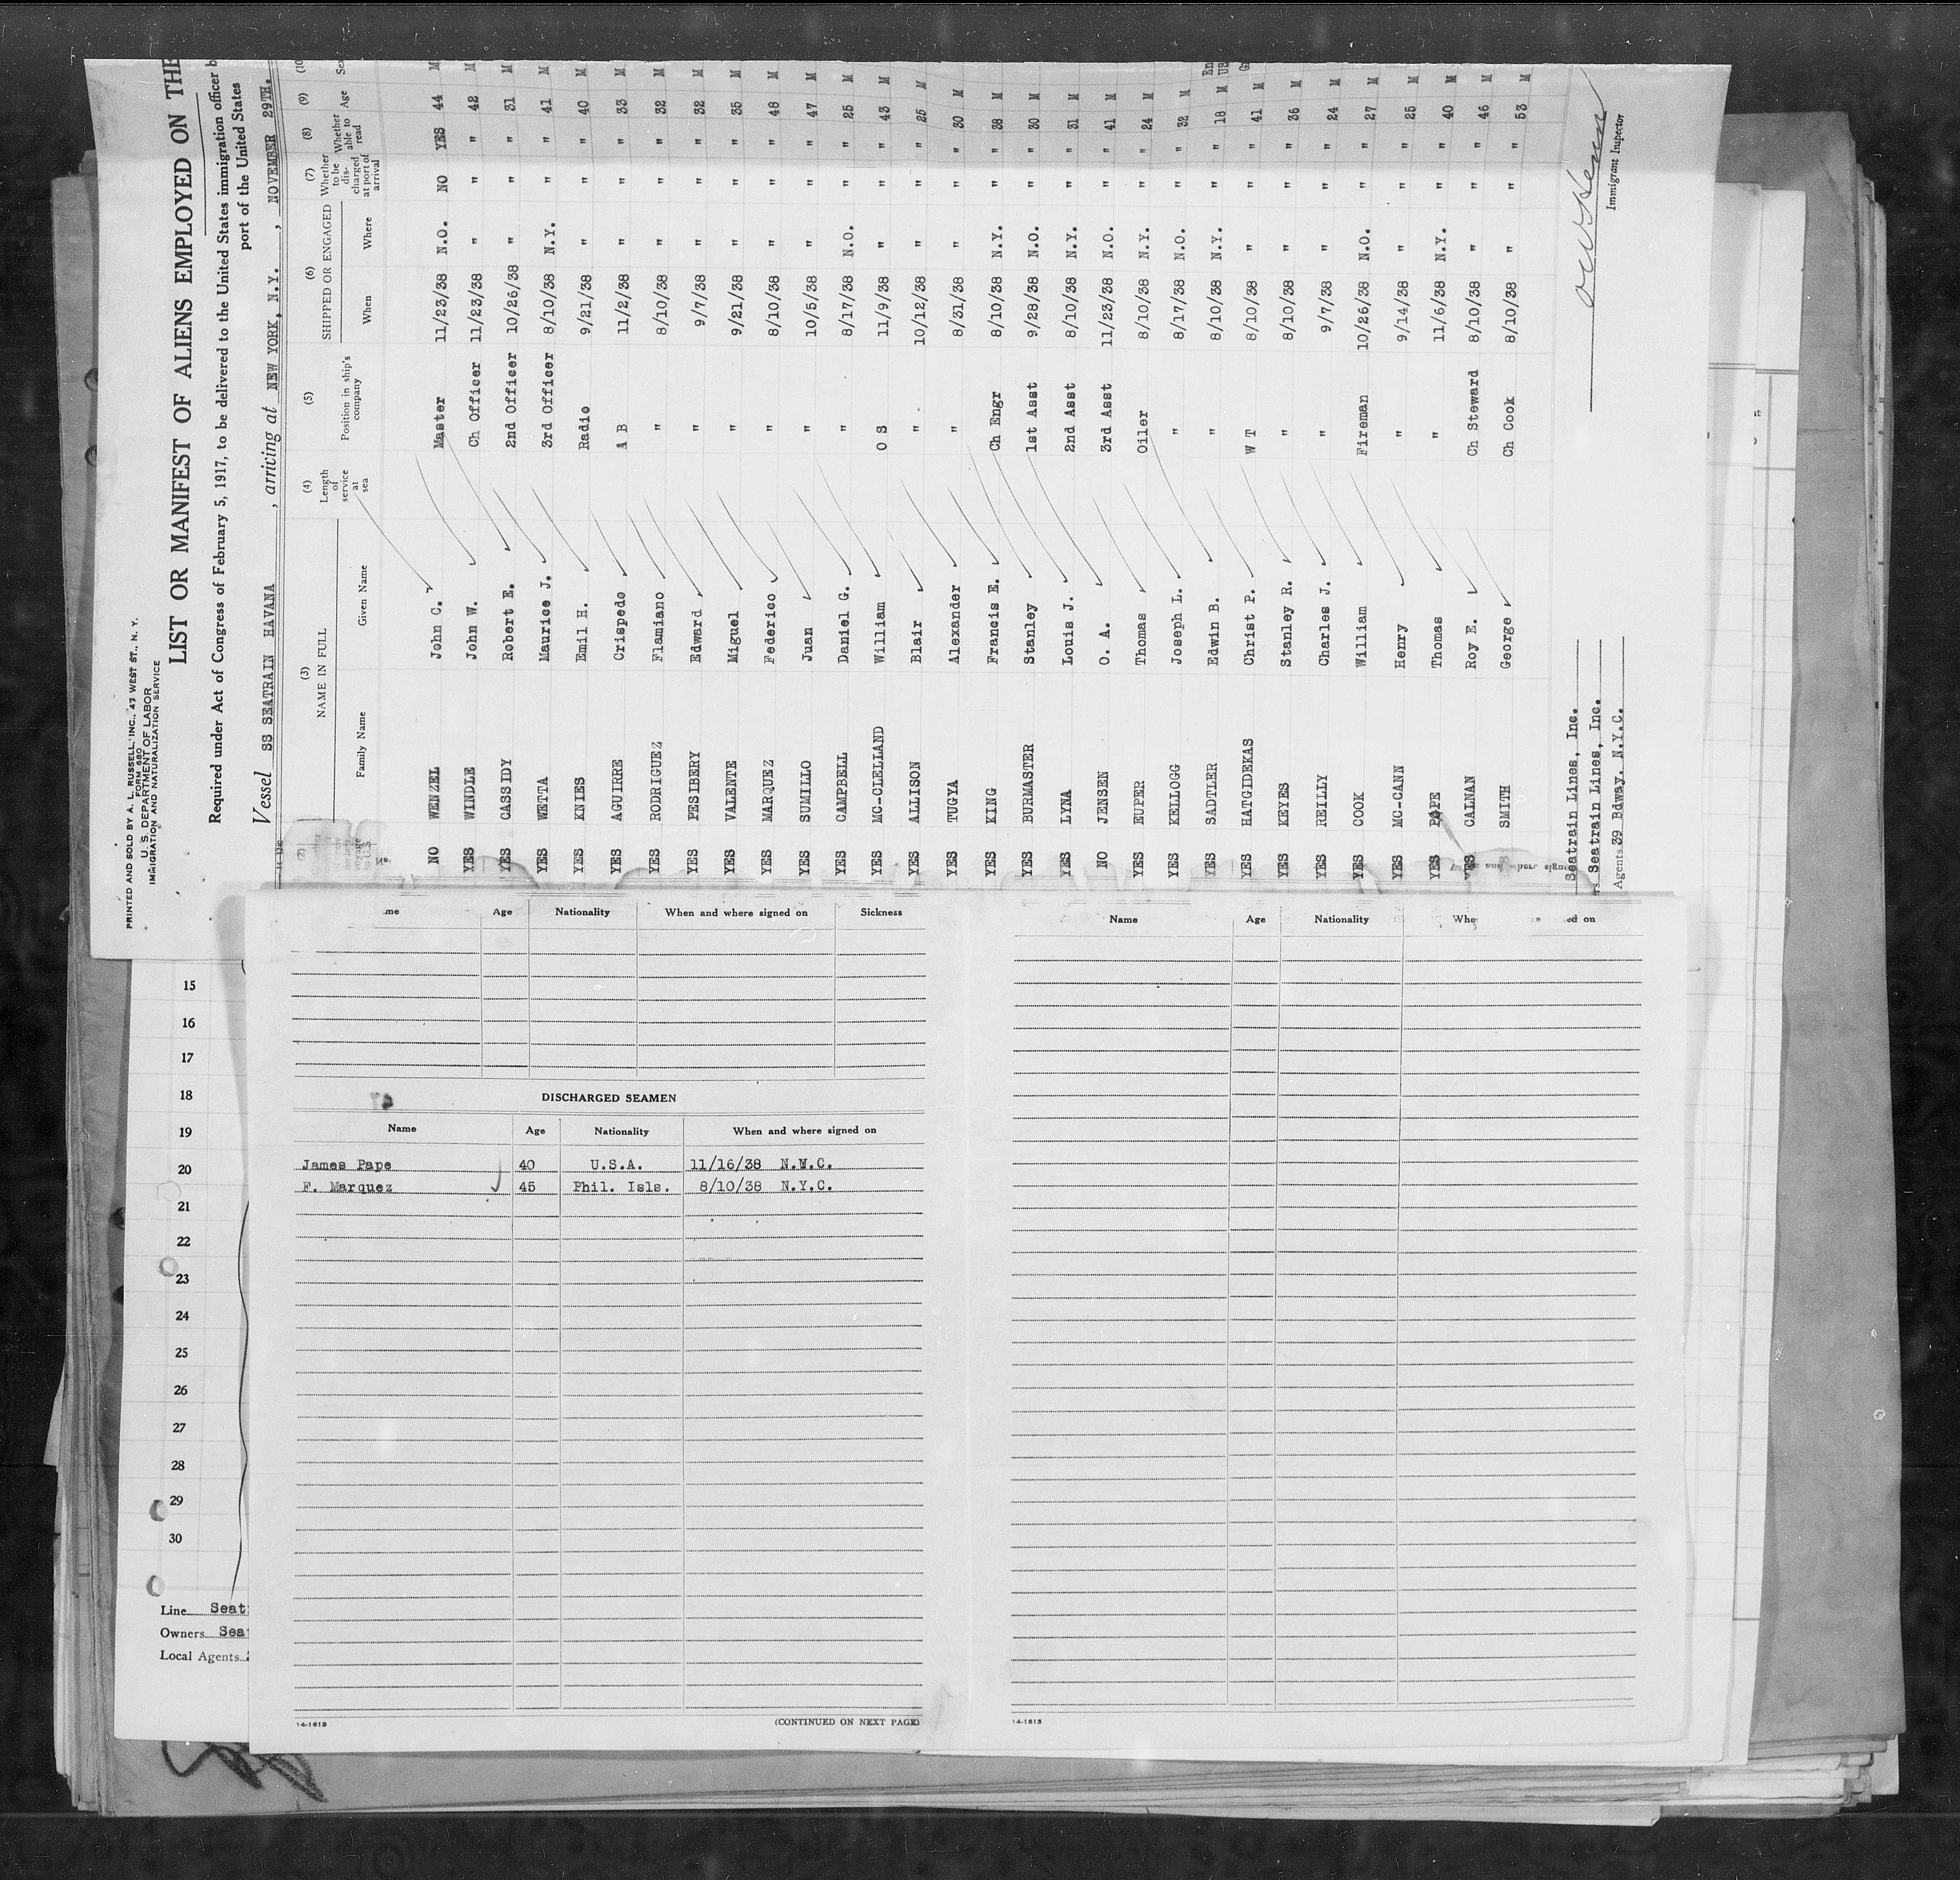 PRINTED AND SOLD BY A. L. RUSSELL, INC., 47 WEST ST., N. Y.
FORM 680
U. S. DEPARTMENT OF LABOR
IMMIGRATION AND NATURALIZATION SERVICE
LIST OR MANIFEST OF ALIENS EMPLOYED ON THE
Required under Act of Congress of February 5, 1917, to be delivered to the United States immigration officer b
port of the United States
Vessel SS SEATRAIN HAVANA, arriving at NEW YORK, N.Y., NOVEMBER 29TH.
(2) (3) (4) (5) (6) (7) (8) (9) (10
NAME IN FULL Length of service at sea Position in ship's company SHIPPED OR ENGAGED Whether to be discharged at port of arrival Whether able to read Age Sex
Family Name Given Name When Where
NO WENZEL John C. Master 11/23/38 N.O. NO YES 44 M
YES WINDLE John W. Ch Officer 11/23/38 " " " 42 M
YES CASSIDY Robert E. 2nd Officer 10/26/38 " " " 31 M
YES WETTA Maurice J. 3rd Officer 8/10/38 N.Y. " " 41 M
YES KNIES Emil H. Radio 9/21/38 " " " 40 M
YES AGUIRRE Crispedo A B 11/2/38 " " " 33 M
YES RODRIGUEZ Flamiano " 8/10/38 " " " 32 M
YES PESIBERY Edward " 9/7/38 " " " 32 M
YES VALENTE Miguel " 9/21/38 " " " 35 M
YES MARQUEZ Federico " 8/10/38 " " " 48 M
YES SUMILLO Juan " 10/5/38 " " " 47 M
YES CAMPBELL Daniel G. " 8/17/38 N.O. " " 25 M
YES MC-CLELLAND William O S 11/9/38 " " " 43 M
YES ALLISON Blair " 10/12/38 " " " 25 M
YES TUGYA Alexander " 8/31/38 " " " 30 M
YES KING Francis E. Ch Engr 8/10/38 N.Y. " " 38 M
YES BURMASTER Stanley 1st Asst 9/28/38 N.O. " " 30 M
YES LYNA Louis J. 2nd Asst 8/10/38 N.Y. " " 31 M
NO JENSEN O. A. 3rd Asst 11/23/38 N.O. " " 41 M
YES EUPER Thomas Oiler 8/10/38 N.Y. " " 24 M
YES KELLOGG Joseph L. " 8/17/38 N.O. " " 32 M
YES SADTLER Edwin B. " 8/10/38 N.Y. " " 18 M En US
YES HATGIDEKAS Christ P. W T 8/10/38 " " " 41 M G
YES KEYES Stanley R. " 8/10/38 " " " 36 M
YES REILLY Charles J. " 9/7/38 " " " 24 M
YES COOK William Fireman 10/26/38 N.O. " " 27 M
YES MC-CANN Henry " 9/14/38 " " " 25 M
YES PAPE Thomas " 11/6/38 N.Y. " " 40 M
YES CALNAN Roy E. Ch Steward 8/10/38 " " " 46 M
SMITH George Ch Cook 8/10/38 " " " 53 M
Seatrain Lines, Inc.
Seatrain Lines, Inc.
Agents 39 Bdway. N.Y.C.
Immigrant Inspector
me Age Nationality When and where signed on Sickness
DISCHARGED SEAMEN
Name Age Nationality When and where signed on
James Pape 40 U.S.A. 11/16/38 N.M.C.
F. Marquez 45 Phil. Isls. 8/10/38 N.Y.C.
14-1613 (CONTINUED ON NEXT PAGE)
Name Age Nationality Whe ed on
14-1613
15
16
17
18
19
20
21
22
23
24
25
26
27
28
29
30
Line Seat
Owners Sea
Local Agents